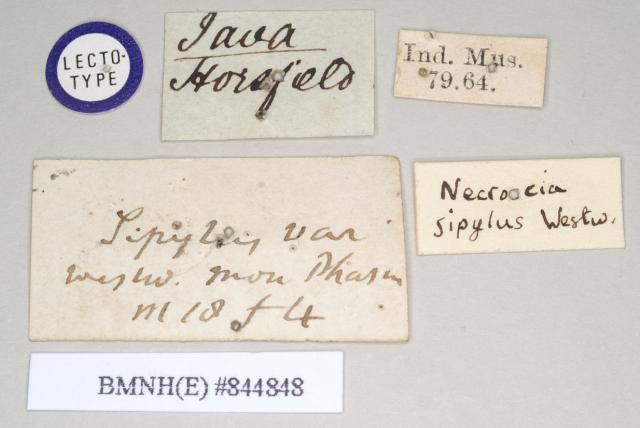 LECTO-
TYPE
Java
Horsfield
Ind. Mus.
79.64.
Sipylus var
westw. mon Phasm
Necroscia
sipylus Westw.
BMNH(E) #844848